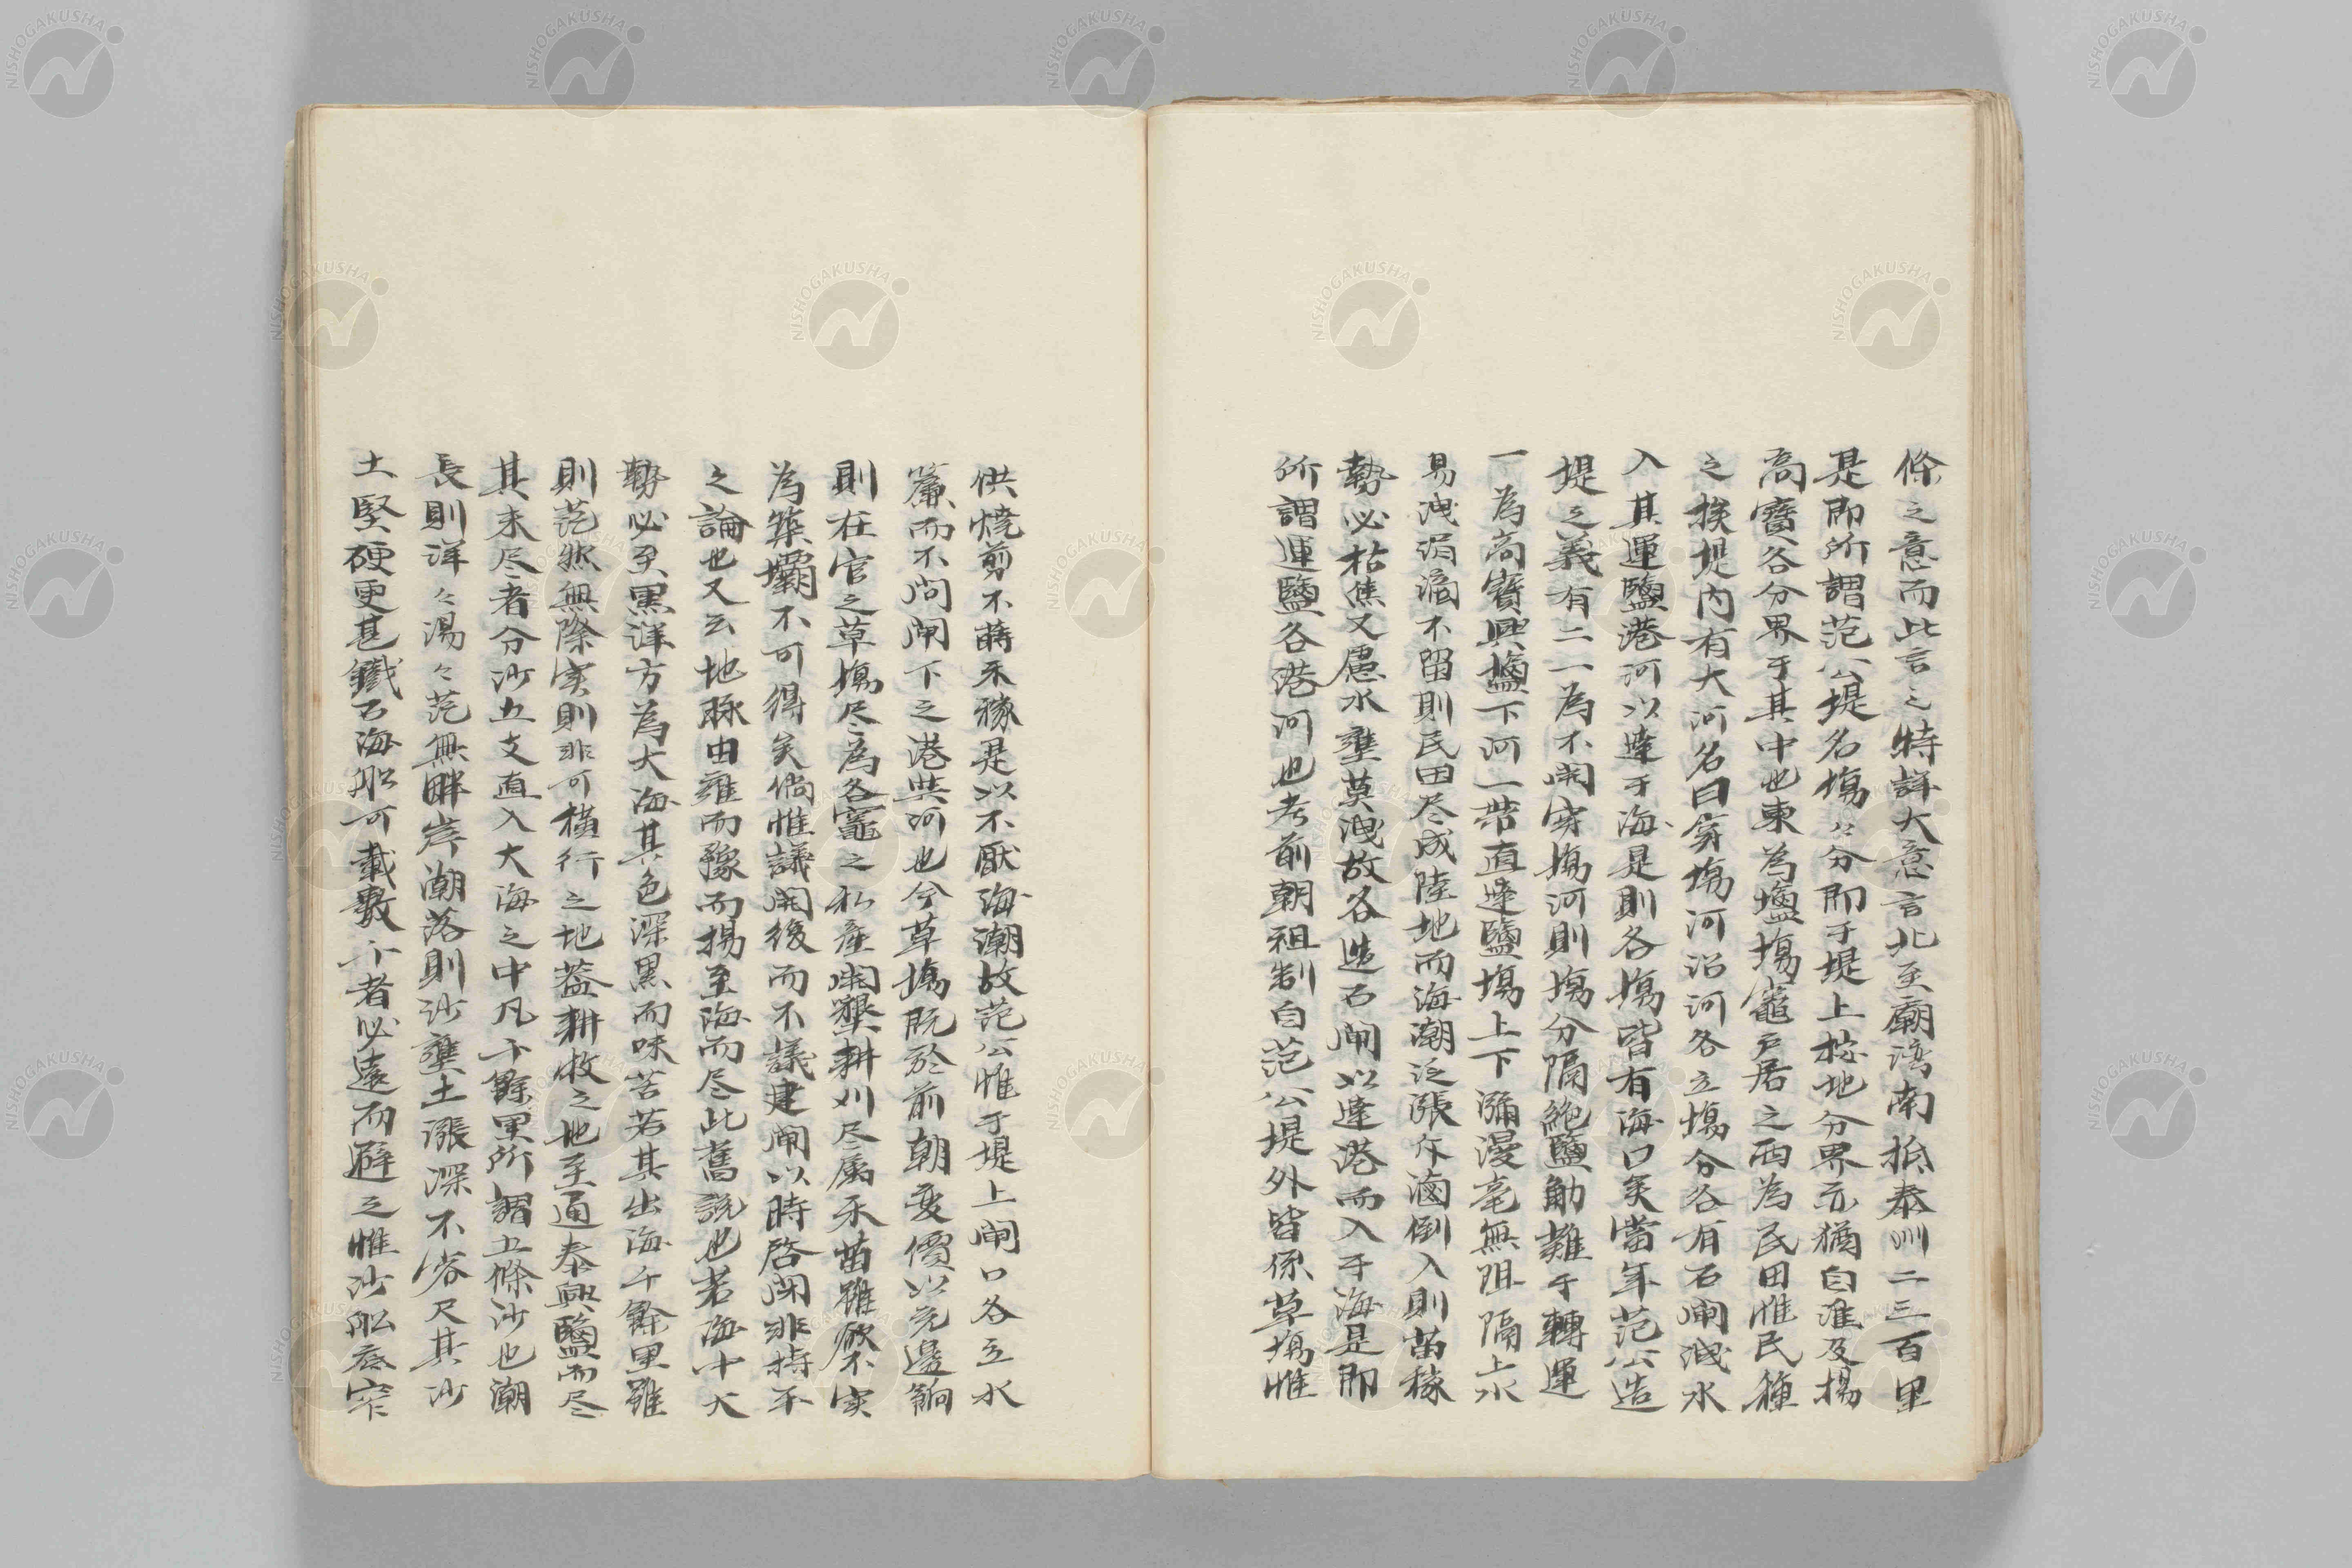 條之意而此言之特詳大意言北至廟湾南抵泰州二三百里
是即所謂范公堤名塲々分即于堤上按地分界亦猶自淮及揚
高寶各分界于其中也東為塩塲竈戶居之西為民田惟民種
之挨堤內有大河名曰穿塲河沿河各立塲分各有石閘洩水
入其運鹽港河以達于海是則各塲皆有海口矣當年范公造
堤之義有二一為不開穿塲河則塲分隔絕鹽觔難于轉運
一為高寶興塩下河一帯直達鹽塲上下瀰漫毫無阻隔上水
易洩涓滴不留則民田尽成陸地而海潮泛漲斥滷倒入則苗稼
勢必枯焦又慮水壅莫洩故各造石閘以達港而入于海是即
所謂運鹽各港河也考前朝祖制自范公堤外皆係草塲惟
供燒剪不蒔禾稼是以不厭海潮故范公惟于堤上閘口各立水
簾而不問閘下之港與河也今草塲既於前朝变價以充邊餉
則在官之草塲尽為各竈之私產開墾耕刈尽屬禾苗雖欲不實
為築壩不可得矣倘惟議開後而不議建閘以時啓閉非持平
之論也又云地脉由雍而豫而揚至海而尽此舊說也若海十大
勢必至黑洋方為大海其色深黑而味苦若其出海千餘里雖
則茫然無際实則非可橫行之地蓋耕收之地至通泰興鹽而尽
其未尽者分沙五支直入大海之中凡十餘里所謂五條沙也潮
長則洋々湯々茫無畔岸潮落則沙壅土漲深不容尺其沙
土堅硬更甚鐵石海舩可載數千者必遠而避之惟沙舩底窄